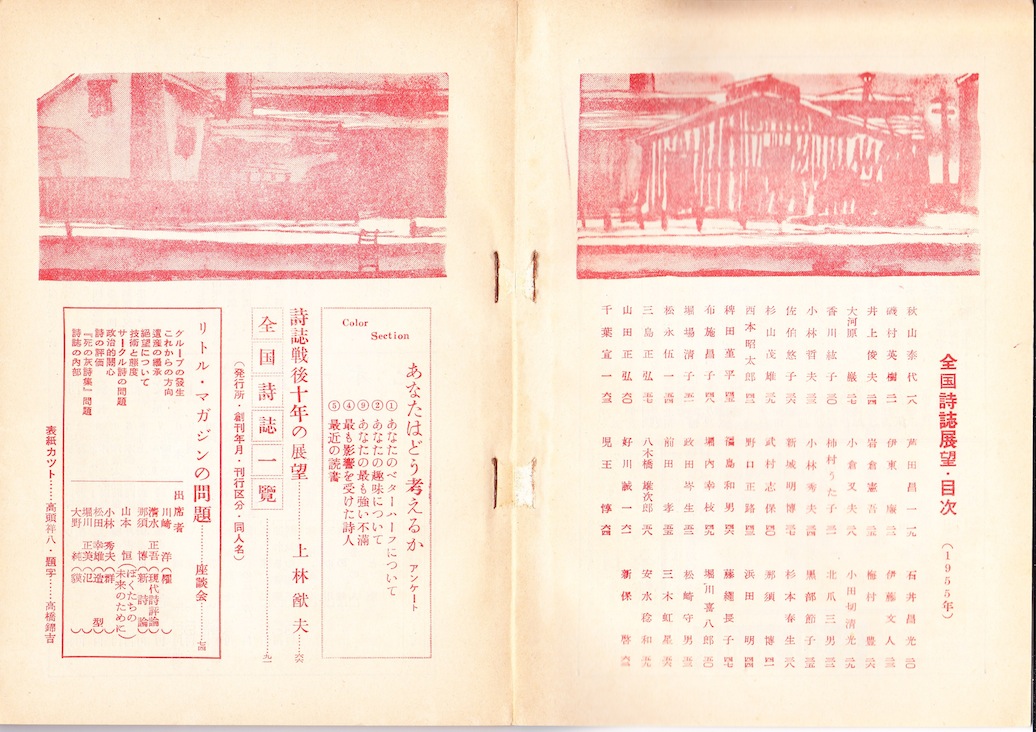 全国詩誌展望・目次
(1955年)
秋山泰代 一八
磯村英樹 二二
井上俊夫 二四
大河原 巌 二七
香川紘子 三〇
小林哲夫 三三
佐伯悠子 三六
杉山茂雄 三九
西本昭太郎 四三
稗田菫平 四六
布施昌子 四八
堀場清子 五一
松永伍一 五四
三島正弘 五七
山田正弘 六〇
千葉宣一 六三
芦田昌一 一九
伊東 廉 二三
岩倉憲吾 二五
小倉又夫 二八
柿村うた子 三一
小林秀夫 三四
新城明博 三七
武村志保 四〇
野口正路 四三
政田岑生 五二
前田 孝 五五
八木橋雄次郎 五八
好川誠一 六一
児玉 惇 六四
石井昌光 二〇
伊藤文人 二三
梅村 豊 二六
小田切清光 二九
北爪三男 三二
黒部節子 三五
杉本春生 三八
那須 博 四一
浜田 明 四四
藤縄長子 四七
堀川喜八郎 五〇
松崎守男 五三
三木虹星 五六
安水稔和 五九
新保 啓 六二
Color
Section
あなたはどう考えるか アンケート
①あなたのベターハーフについて
②あなたの趣味について
あなたの最も強い不満
④最も影響を受けた詩人
⑤最近の読書
詩誌戦後十年の展望……上林猷夫……六六
全国詩誌一覧……九一
(発行所・創刊年月・刊行区分・同人名)
リトル・マガジンの問題……座談会……七四
グループの発生
これからの方向
遺産の継承
絶望について
技術と態度
サークル詩の問題
政治的関心
詩の評価
『死の灰詩集』問題
詩誌の内部
出席者
川崎 洋(櫂)
清水正吾(現代詩評論)
那須 博(新詩論)
山本 恒(ぼくたちの未来のために)
小林秀夫(群)
松田幸雄(造型)
堀川正美(氾)
表紙カット……高頭祥八・題字……高橋錦吉